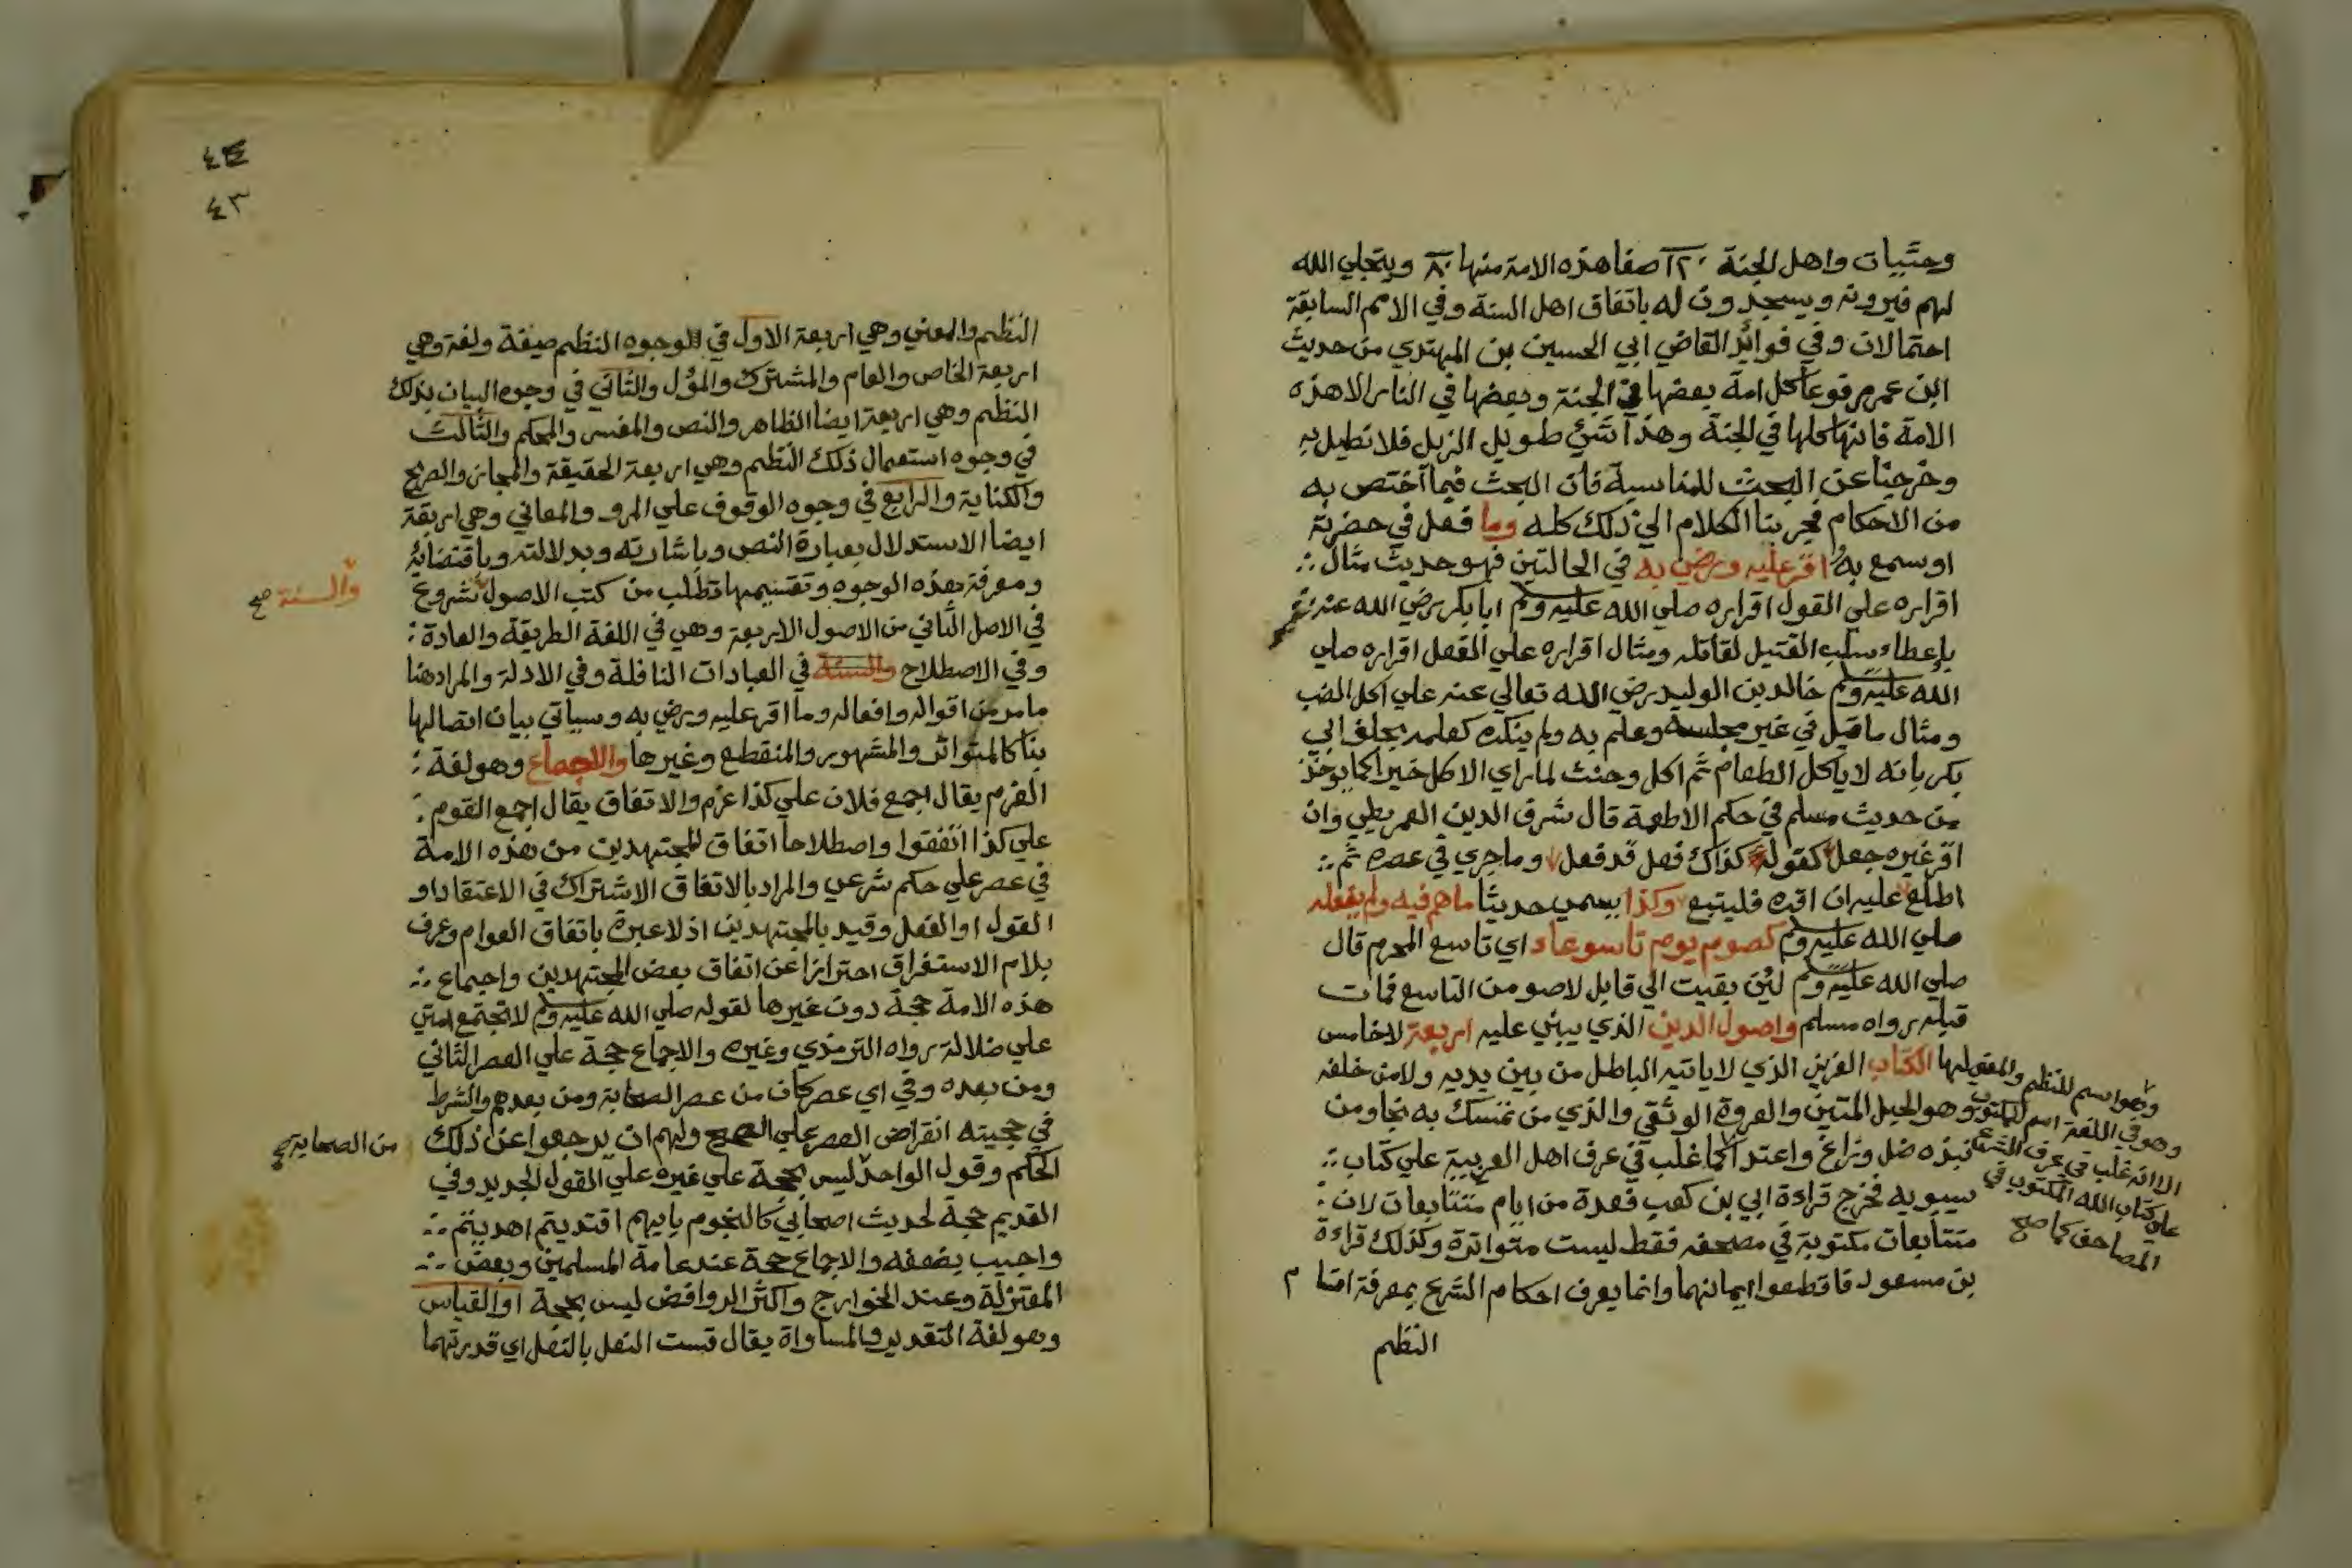 وحثيات واهل الجنة ١٢٠ صفا هذه الامة منها ٨٠ ويتجلي الله
لهم فيرونه ويسجدون له باتفاق اهل السنة وفي الامم السابقة
احتمالان وفي فوائد القاضي ابي الحسين بن المهتدي من حديث
ابن عمر مرفوعا كل امة بعضها في الجنة وبعضها في النار الا هذه
الامة فانها كلها في الجنة وهذا شئ طويل الذيل فلا نطيل به
وخرجنا عن البحث للمناسبة فان البحث فيما اختص به
من الاحكام فجرينا الكلام الي ذلك كله وما فعل في حضرته
او سمع به اقر عليه ورضي به في الحالتين فهو حديث مثال
اقراره علي القول اقراره صلي الله عليه وسلم ابا بكر رضي الله عنه
باعطاء سلب القتيل لقاتله ومثال اقراره علي الفعل اقراره صلي
الله عليه وسلم خالد بن الوليد رضي الله تعالي عنه علي اكل الضب
ومثال ما قيل في غير مجلسه وعلم به ولم ينكره كعلمه بحلف ابي
بكر بانه لا ياكل الطعام ثم اكل وحنث لما راي الاكل خيرا كما يوخذ
من حديث مسلم في حكم الاطعمة قال شرف الدين العمريطي وان
اقر غيره جعل كقوله كذاك فعل قد فعل وما جري في عصره ثم
اطلع عليه ان اقره فليتبع وكذا يسمي حديثا ما هم فيه ولم يفعله
صلي الله عليه وسلم كصوم يوم تاسوعاء اي تاسع المحرم قال
صلي الله عليه وسلم لئن بقيت الي قابل لاصومن التاسع فمات
قبله رواه مسلم واصول الدين الذي يبني عليه اربعة لا خامس
لها الكتاب العزيز الذي لا ياتيه الباطل من بين يديه ولا من خلفه
وهو الحبل المتين والعروة الوثقي والذي من تمسك به نجا ومن
نبذه ضل وزاغ واعتدا كما غلب في عرف اهل العربية علي كتاب
سيبويه فخرج قراءة ابي بن كعب فعدة من ايام متتابعات لان
متتابعات مكتوبة في مصحفه فقط ليست متواترة وكذلك قراءة
بن مسعود فاقطعوا ايمانهما وانما يعرف احكام الشرع بمعرفة اقسام
النظم
وهو اسم للنظم والمعني
وهو في اللغة اسم للمكتوب
الا انه غلب في عرف الشرع
علي كتاب الله المكتوب في
المصاحف كما صح
٤٣
النظم والمعني وهي اربعة الاول في الوجوه النظم صيغة ولغة وهي
اربعة الخاص والعام والمشترك والمؤل والثاني في وجوه البيان بذلك
النظم وهي اربعة ايضا الظاهر والنص والمفسر والمحكم والثالث
في وجوه استعمال ذلك النظم وهي اربعة الحقيقة والمجاز والصريح
والكناية والرابع في وجوه الوقوف علي المرو والمعاني وهي اربعة
ايضا الاستدلال بعبارة النص وباشارته وبدلالته وباقتضائه
ومعرفة هذه الوجوه وتقسيمها تطلب من كتب الاصول شروع
والسنة صح
في الاصل الثاني من الاصول الاربعة وهي في اللغة الطريقة والعادة
وفي الاصطلاح والسنة في العبادات النافلة وفي الادلة والمراد هنا
ما مر من اقواله وافعاله وما اقر عليه ورضي به وسياتي بيان اتصالها
بنا كالمتواتر والمشهور والمنقطع وغيرها والاجماع وهو لغة
العزم يقال اجمع فلان علي كذا عزم والاتفاق يقال اجمع القوم
علي كذا اتفقوا واصطلاحا اتفاق المجتهدين من هذه الامة
في عصر علي حكم شرعي والمراد بالاتفاق الاشتراك في الاعتقاد او
القول او الفعل وقيد بالمجتهدين اذ لا عبرة باتفاق العوام وعرف
بلام الاستغراق احترازا عن اتفاق بعض المجتهدين واجماع
هذه الامة حجة دون غيرها لقوله صلي الله عليه وسلم لا تجتمع امتي
علي ضلالة رواه الترمذي وغيره والاجماع حجة علي العصر الثاني
ومن بعده وفي اي عصر كان من عصر الصحابة ومن بعدهم والشرط
في حجيته انقراض العصر علي الصحيح ولهم ان يرجعوا عن ذلك
الحكم وقول الواحد ليس بحجة علي غيره علي القول الجديد وفي
من الصحابة صح
القديم حجة لحديث اصحابي كالنجوم بايهم اقتديتم اهديتم
واجيب بضعفه والاجماع حجة عند عامة المسلمين وبعض
المعتزلة وعند الخوارج واكثر الروافض ليس بحجة او القياس
وهو لغة التقدير والمساواة يقال قست النعل بالنعل اي قدرتهما